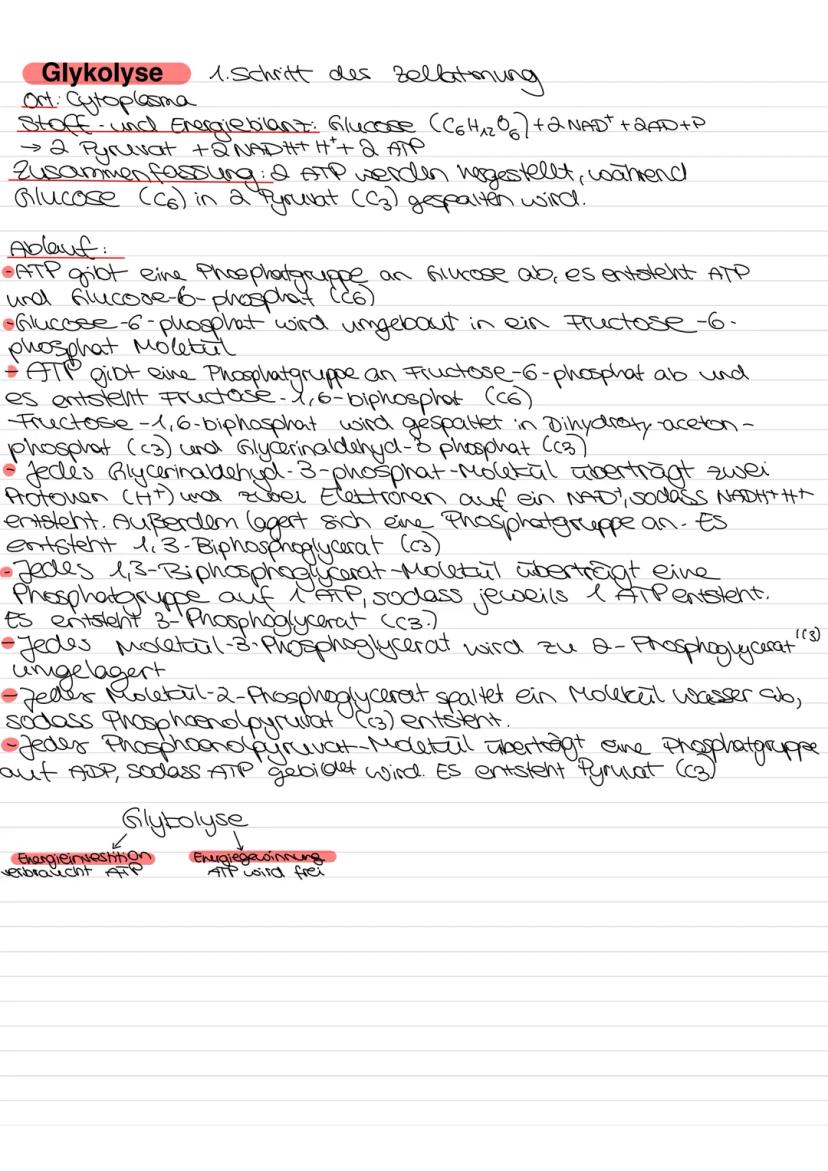 Glykolyse 1. Schritt des Zellatmung
Ort: Cytoplasma
Stoff- und Energiebilanz: Glucose (C6H12O6) + 2 NAD+ + 2 AD+P
→ 2 Pyruvat + 2 NADH+ H+ + 2 ATP
Zusammenfassung: 2 ATP werden hergestellt, während
Glucose (C6) in 2 Pyruvat (C3) gespalten wird.
Ablauf:
- ATP gibt eine Phosphatgruppe an Glucose ab, es entsteht ATP
und Glucose-6-phosphat (C6)
- Glucose-6-phosphat wird umgebaut in ein Fructose-6-
phosphat Molekül
- ATP gibt eine Phosphatgruppe an Fructose-6-phosphat ab und
es entsteht Fructose-1,6-biphosphat (C6)
- Fructose-1,6-biphosphat wird gespaltet in Dihydroxy-aceton-
phosphat (C3) und Glycerinaldehyd-3 phosphat (C3)
- Jedes Glycerinaldehyd-3-phosphat-Molekül überträgt zwei
Protonen (H+) und zwei Elektronen auf ein NAD+, sodass NADH+H+
entsteht. Außerdem lagert sich eine Phosphatgruppe an. Es
entsteht 1,3-Biphosphoglycerat (C3)
- Jedes 1,3-Biphosphoglycerat-Molekül überträgt eine
Phosphatgruppe auf 1 ATP, sodass jeweils 1 ATP entsteht.
Es entsteht 3-Phosphoglycerat (C3.)
- Jedes Molekül-3-Phosphoglycerat wird zu 2-Phosphoglycerat (C3)
umgelagert
- Jedes Molekül-2-Phosphoglycerat spaltet ein Molekül Wasser ab,
sodass Phosphoenolpyruvat (C3) entsteht.
- Jedes Phosphoenolpyruvat-Molekül überträgt eine Phosphatgruppe
auf ADP, sodass ATP gebildet wird. Es entsteht Pyruvat (C3)
Glykolyse
Energieinvestition Energiegewinnung
verbraucht ATP ATP wird frei